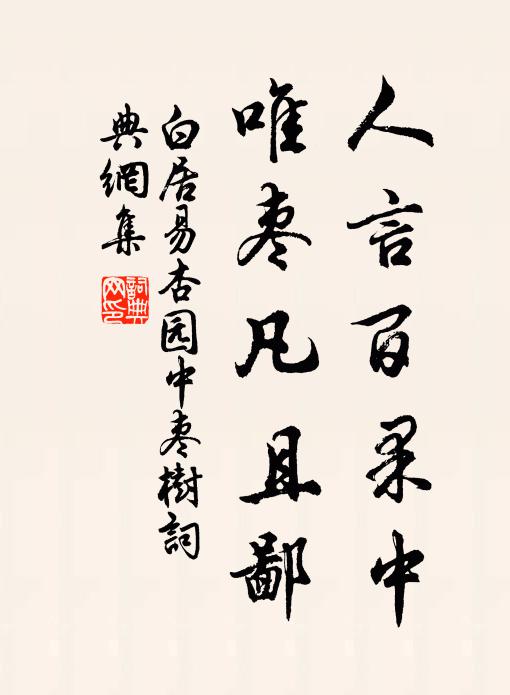 人言百果中
唯枣凡且鄙
白居易杏园中枣樹詞
典網集
詞典
网印